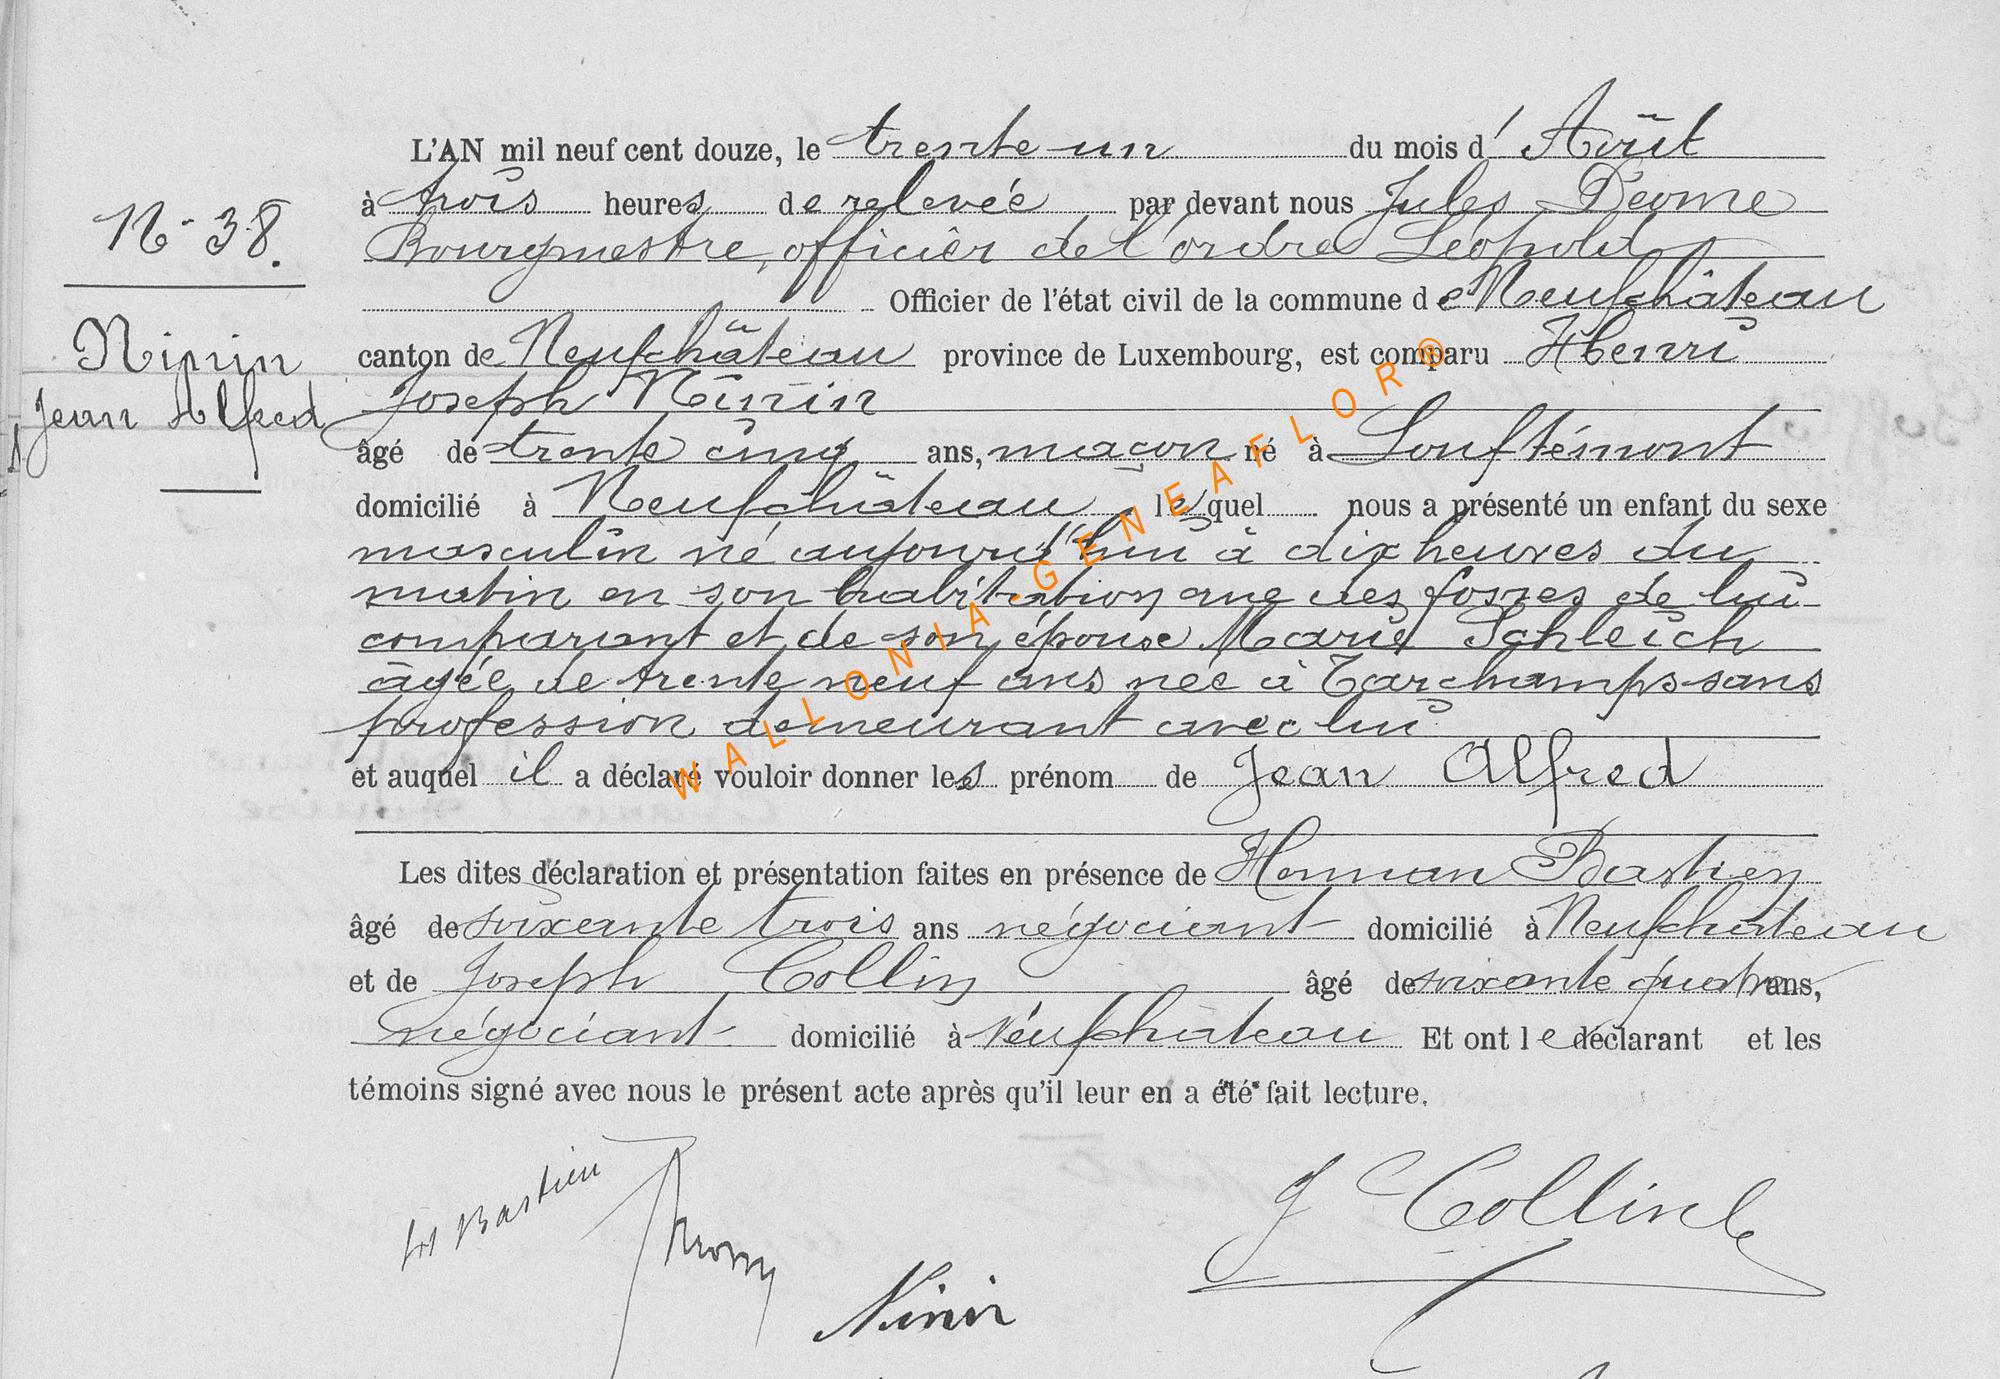 L'AN mil neuf cent douze, le trente-un du mois d'Août
à trois heures de relevée par devant nous Jules
N° 38.
Bourgmestre, officier de l'ordre Léopold
Officier de l'état civil de la commune de Neufchâteau
Ninin
Jean Alfred
canton de Neufchâteau province de Luxembourg, est comparu Henri
Joseph Ninin
âgé de trente cinq ans, maçon né à Louftémont
domicilié à Neufchâteau lequel nous a présenté un enfant du sexe
masculin né aujourd'hui à dix heures du
matin en son habitation rue des fosses de lui
comparant et de son épouse Marie Schleich
âgée de trente neuf ans née à Tarchamps sans
profession demeurant avec lui
et auquel il a déclaré vouloir donner les prénom de Jean Alfred
Les dites déclaration et présentation faites en présence de Herman Bastien
âgé de soixante trois ans négociant domicilié à Neufchateau
et de Joseph Collin âgé de soixante quatre ans,
négociant domicilié à Neufchâteau Et ont le déclarant et les
témoins signé avec nous le présent acte après qu'il leur en a été fait lecture.
Bastien
J Collin
Ninin
WALLONIA-GENEAFLOR®